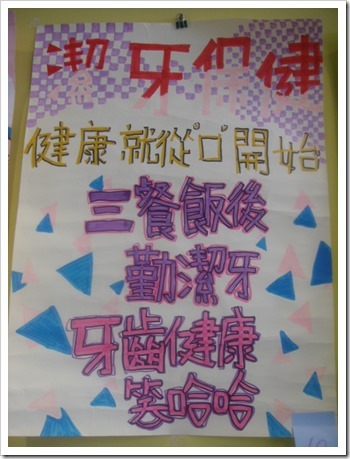 潔牙保健
健康就從"口"開始
三餐飯後
勤潔牙
牙齒健康
笑哈哈